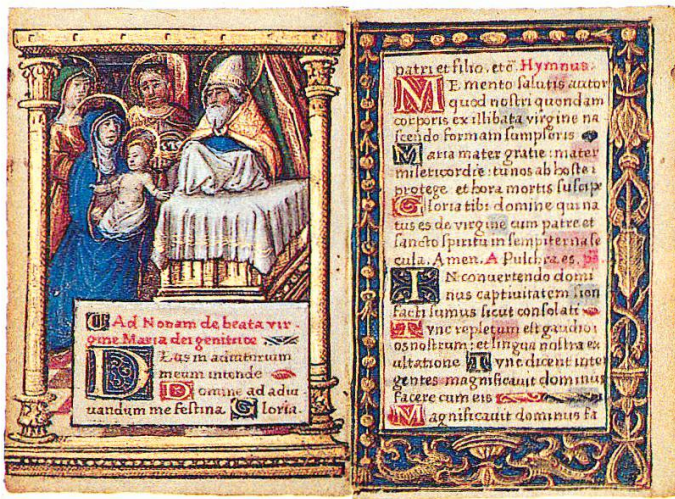 Ad Nonam de beata vir-
gine Maria dei genitrice
Deus in adiutorium
meum intende
Domine ad adiu
vandum me festina Gloria.
patri et filio. etc̄. Hymnus.
Memento salutis autor
quod nostri quondam
corporis ex illibata virgine na
scendo formam sumpseris
Maria mater gratie: mater
misericordie: tu nos ab hoste
protege et hora mortis suscipe
Gloria tibi domine qui na
tus es de virgine cum patre et
sancto spiritu in sempiterna se
cula. Amen. A Pulchra es. ps̄.
IN convertendo domi
nus captivitatem sion
facti sumus sicut consolati
Tunc repletum est gaudio
os nostrum: et lingua nostra ex
ultatione Tunc dicent inter
gentes magnificavit dominus
facere cum eis
Magnificavit dominus fa